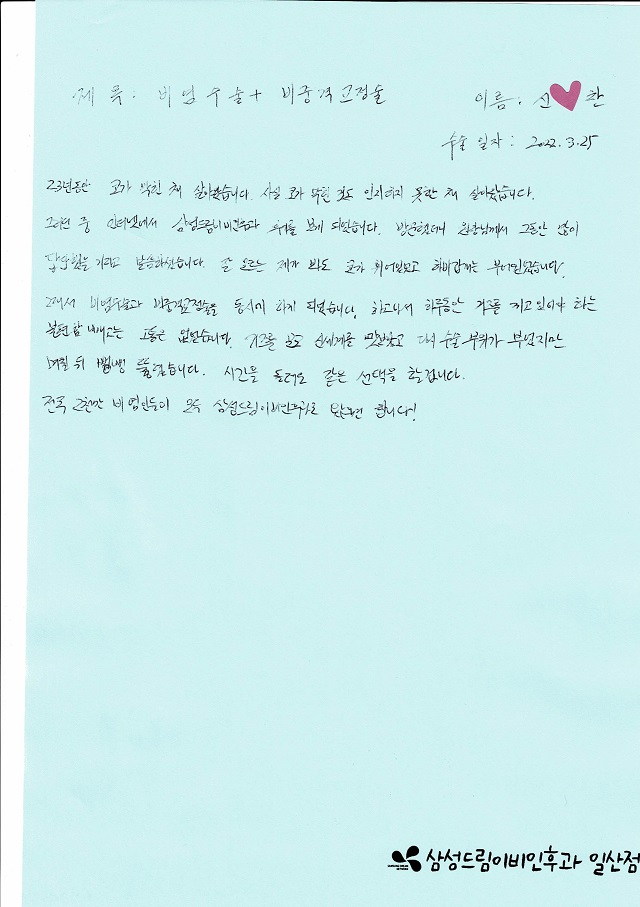 제 목. 비염수술 + 비중격교정술
이름. 신 찬
수술 일자 : 2022. 3. 25
23년동안 코가 막힌 채 살아왔습니다. 사실 코가 막힌 것도 인지하지 못한 채 살아왔습니다.
그러던 중 인터넷에서 삼성드림이비인후과 후기를 보게 되었습니다. 방문했더니 원장님께서 그동안 많이
답답했을거라고 말씀하셨습니다. 잘 모르는 제가 봐도 코가 휘어있었고 하비갑개는 부어있었습니다.
그래서 비염수술과 비중격교정술을 동시에 하게 되었습니다. 하고나서 하루동안 거즈를 끼고 있어야 하는
불편함 빼고는 고통은 없었습니다. 거즈를 빼고 신세계를 맛보았고 다시 수술 부위가 부었지만
며칠 뒤 뻥뻥 뚫렸습니다. 시간을 돌려도 같은 선택을 할겁니다.
전국 2천만 비염인들이 모두 삼성드림이비인후과로 왔으면 합니다!
삼성드림이비인후과 일산점